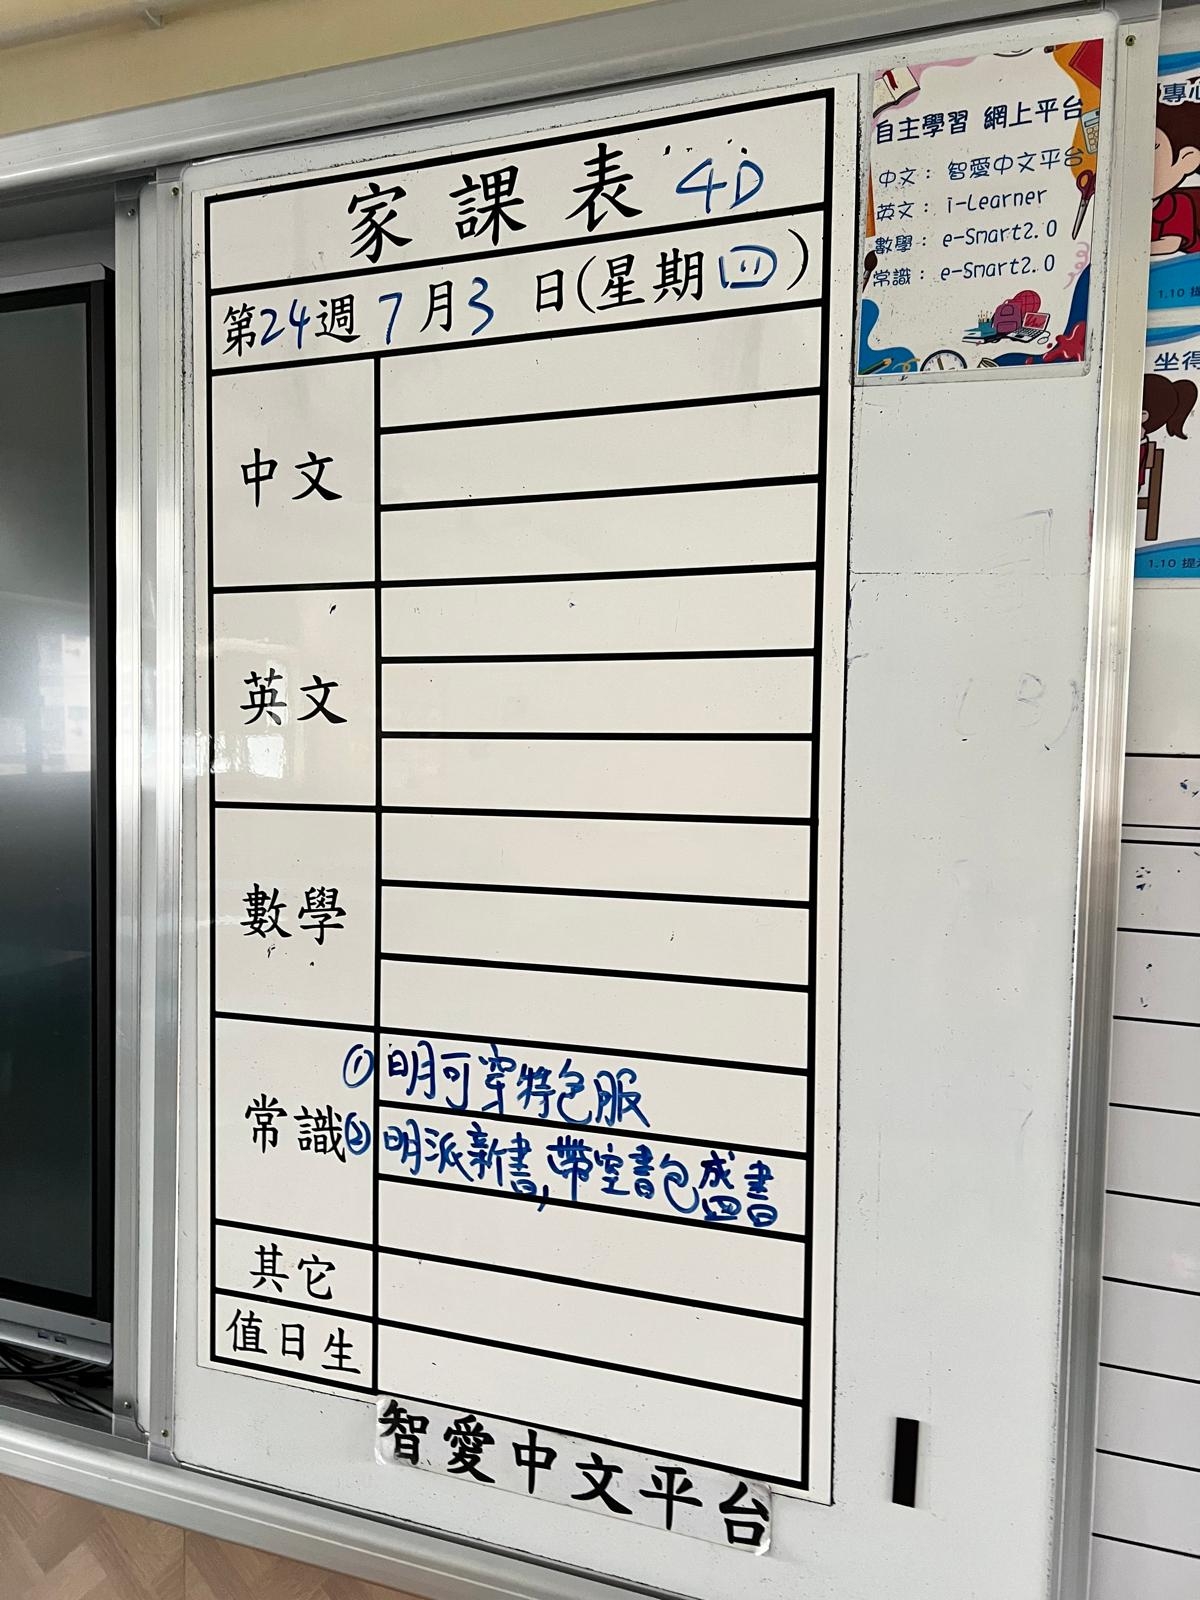 家課表 4D
第24週 7月3日(星期四)
中文
英文
數學
常識
① 明可穿特色服
② 明派新書,帶空書包盛書
其它
值日生
智愛中文平台
自主學習 網上平台
中文： 智愛中文平台
英文： i-Learner
數學： e-Smart2.0
常識： e-Smart2.0
專心
1.10 提
坐得
1.10 提